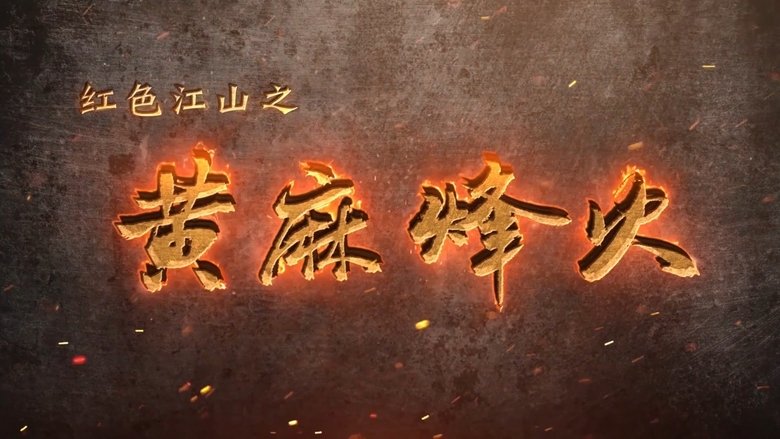 红色江山之
黄麻烽火